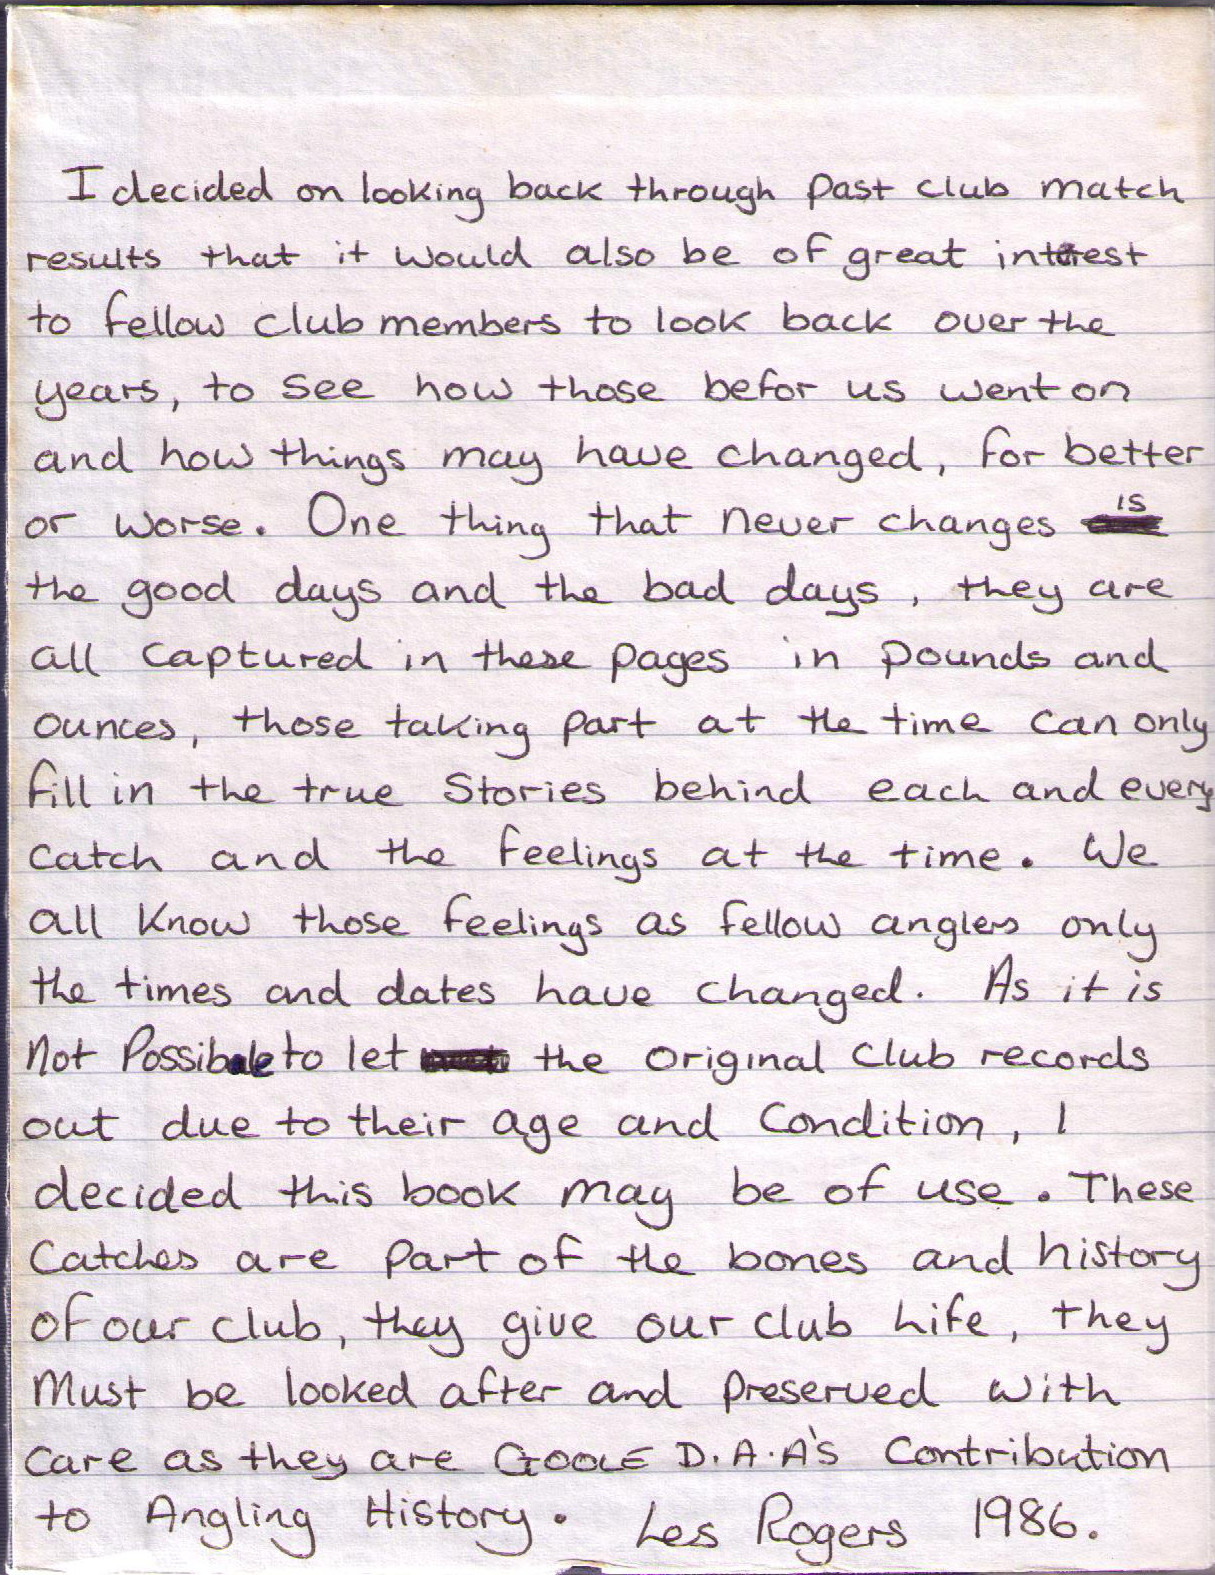 I decided on looking back through past club match
results that it would also be of great interest
to fellow club members to look back over the
years, to see how those befor us went on
and how things may have changed, for better
or worse. One thing that never changes is
the good days and the bad days, they are
all captured in these pages in pounds and
ounces, those taking part at the time can only
fill in the true Stories behind each and every
catch and the feelings at the time. We
all know those feelings as fellow anglers only
the times and dates have changed. As it is
Not Possible to let the original club records
out due to their age and condition, I
decided this book may be of use. These
Catches are part of the bones and history
of our club, they give our club life, they
Must be looked after and preserved with
care as they are GOOLE D.A.A's Contribution
to Angling History. Les Rogers 1986.